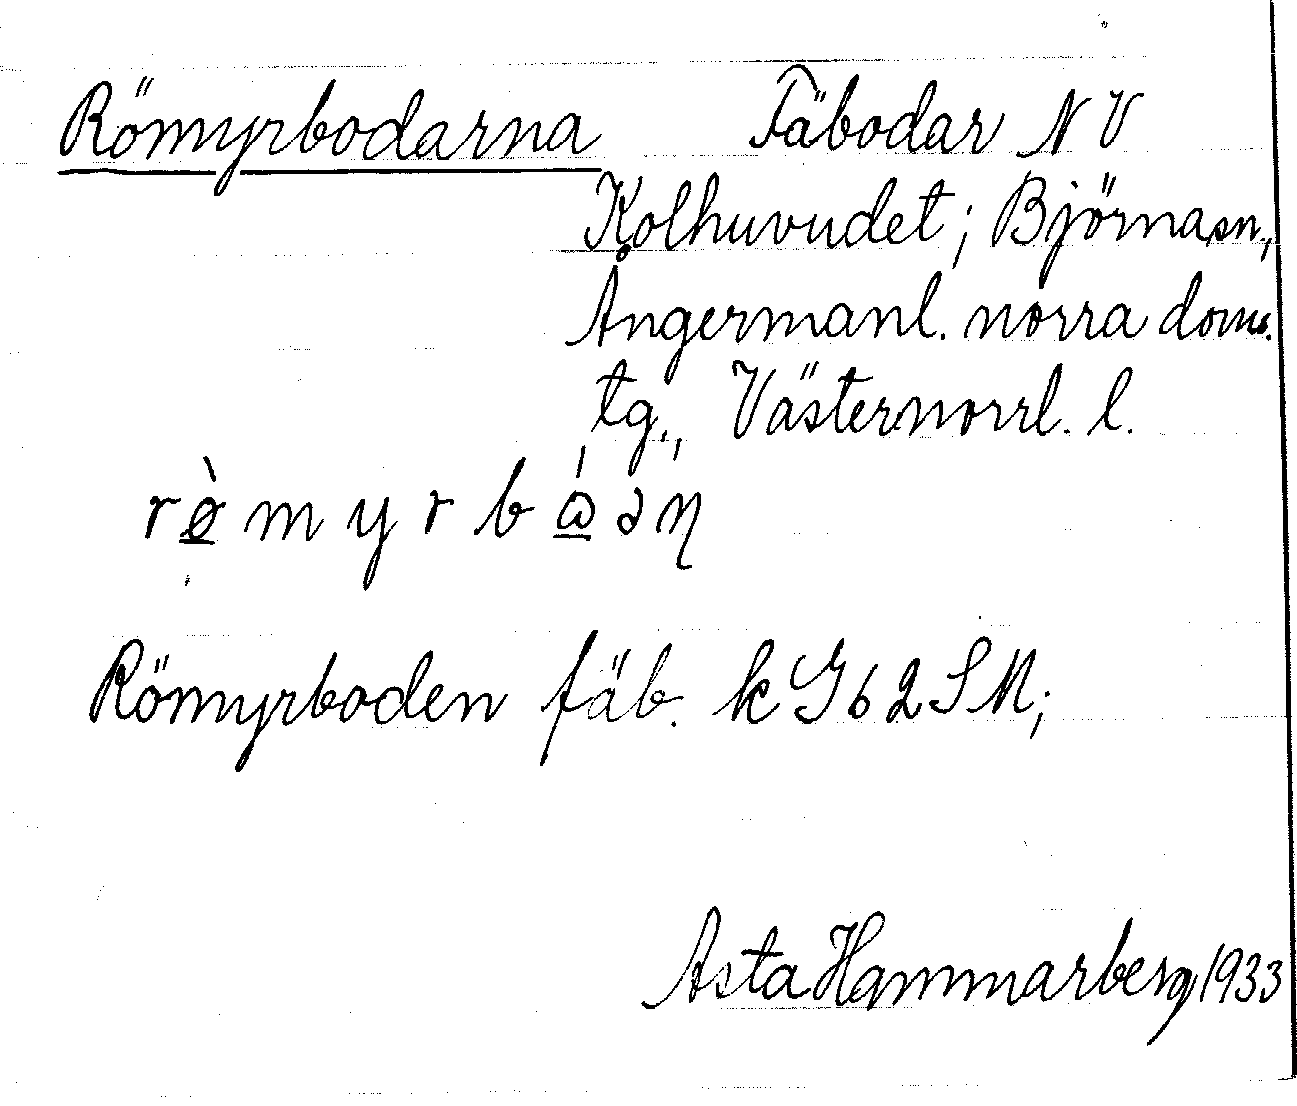 Römyrbodarna Fäbodar NV
Kolhuvudet; Björna sn,
Ångermanl. norra doms.
tg., Västernorrl. l.
rø̀myrbώəη
Römyrboden fäb. kG62SM;
Asta Hammarberg 1933